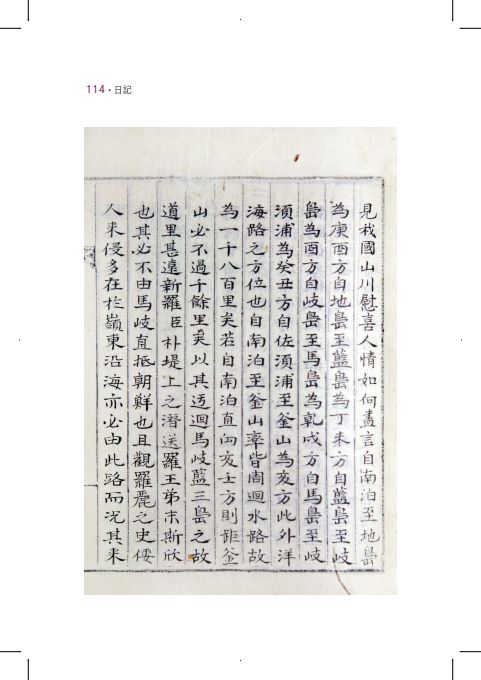 114 • 日記
見我國山川慰喜人情如何盡言自南泊至地島
為庚酉方自地島至藍島為丁未方自藍島至岐
島為酉方自岐島至馬島為乾戌方自馬島至岐
須浦為癸丑方自佐須浦至釜山為亥方此外洋
海路之方位也自南泊至釜山率皆周迴水路故
為一千八百里矣若自南泊直向亥壬方則距釜
山必不過千餘里矣以其迂迴馬岐藍三島之故
道里甚遠新羅臣朴堤上之潛送羅王弟末斯欣
也其必不由馬岐直抵朝鮮也且觀羅麗之史倭
人來侵多在於嶺東沿海亦必由此路而况其来